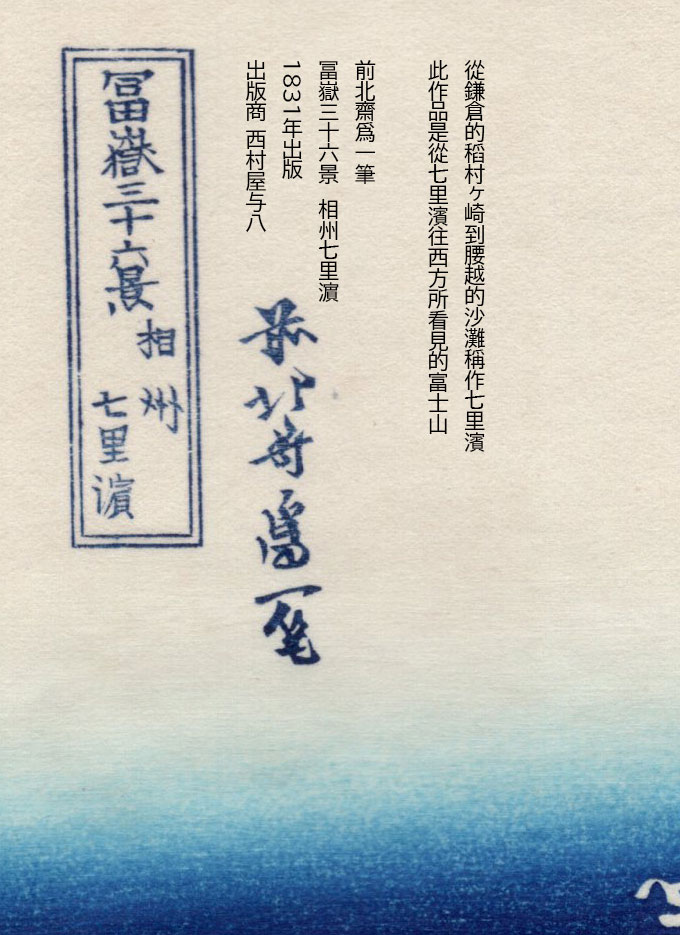 從鎌倉的稻村ヶ崎到腰越的沙灘稱作七里濱
此作品是從七里濱往西方所看見的富士山
前北齋爲一筆
冨嶽三十六景 相州七里濵
1831年出版
出版商 西村屋与八
前北斎爲一笔
冨嶽三十六景
相州
七里濵